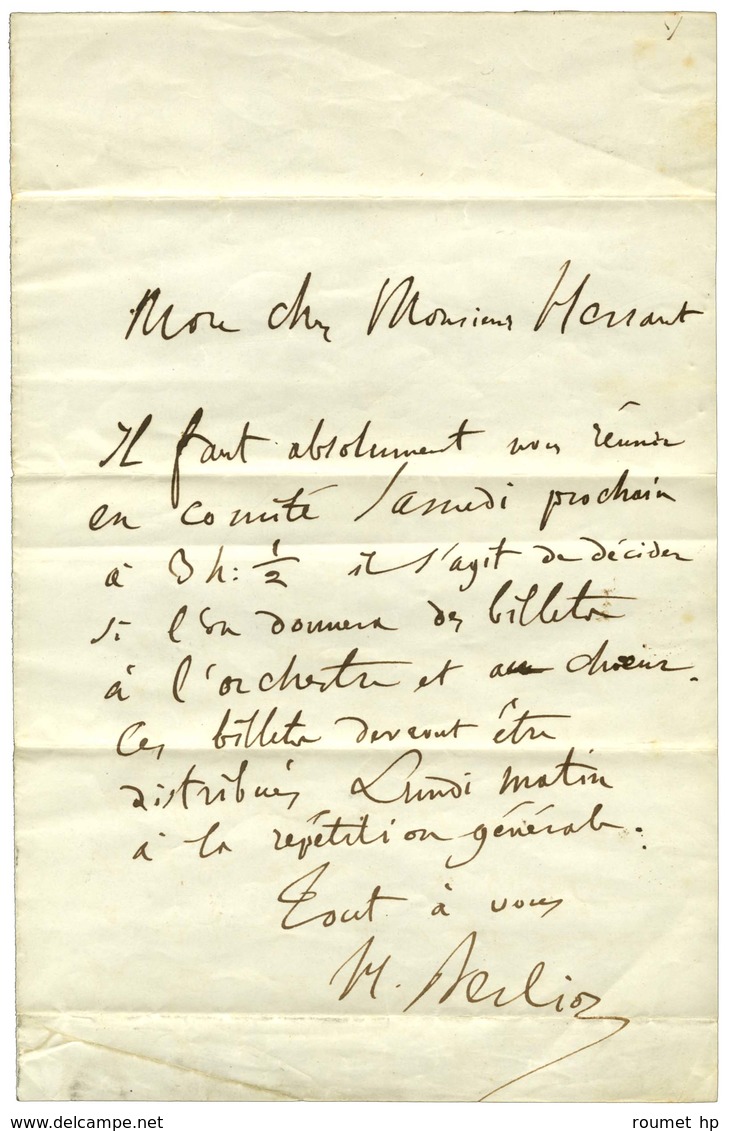 Mon cher Monsieur Hersant
Il faut absolument nous réunir
en comité Samedi prochain
à 3 h: 1/2 il s'agit de décider
si l'on donnera des billets
à l'orchestre et au chœur.
Ces billets devront être
distribués Lundi matin
à la répétition générale.
Tout à vous
H. Berlioz
www.delcampe.net
roumet hp